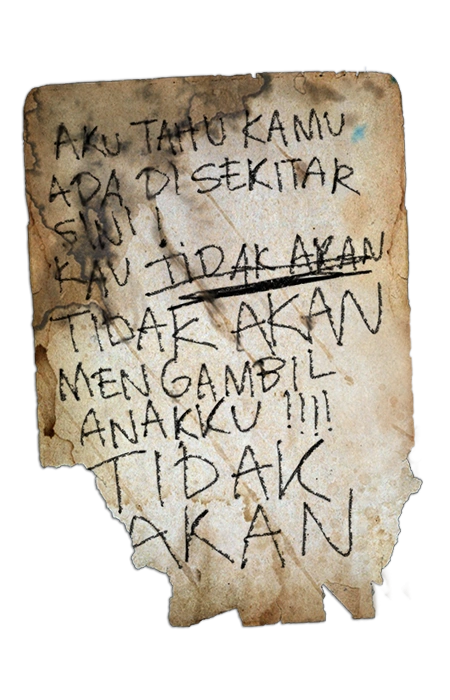 AKU TAHU KAMU
ADA DI SEKITAR
SINI !
KAU TIDAK AKAN
TIDAK AKAN
MENGAMBIL
ANAKKU !!!!
TIDAK
AKAN